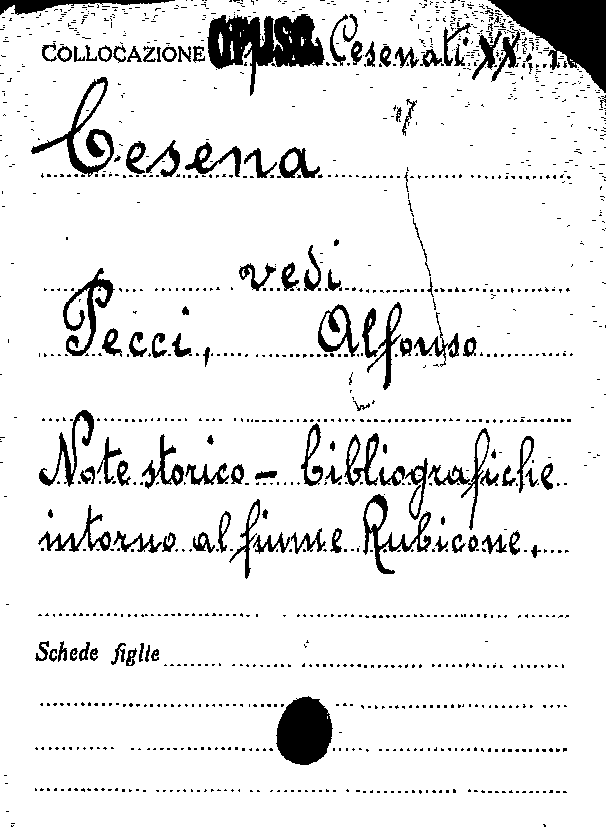 COLLOCAZIONE OPUSC. Cesenati XX.
Cesena
vedi
Pecci, Alfonso
Note storico - bibliografiche
intorno al fiume Rubicone.
Schede figlie